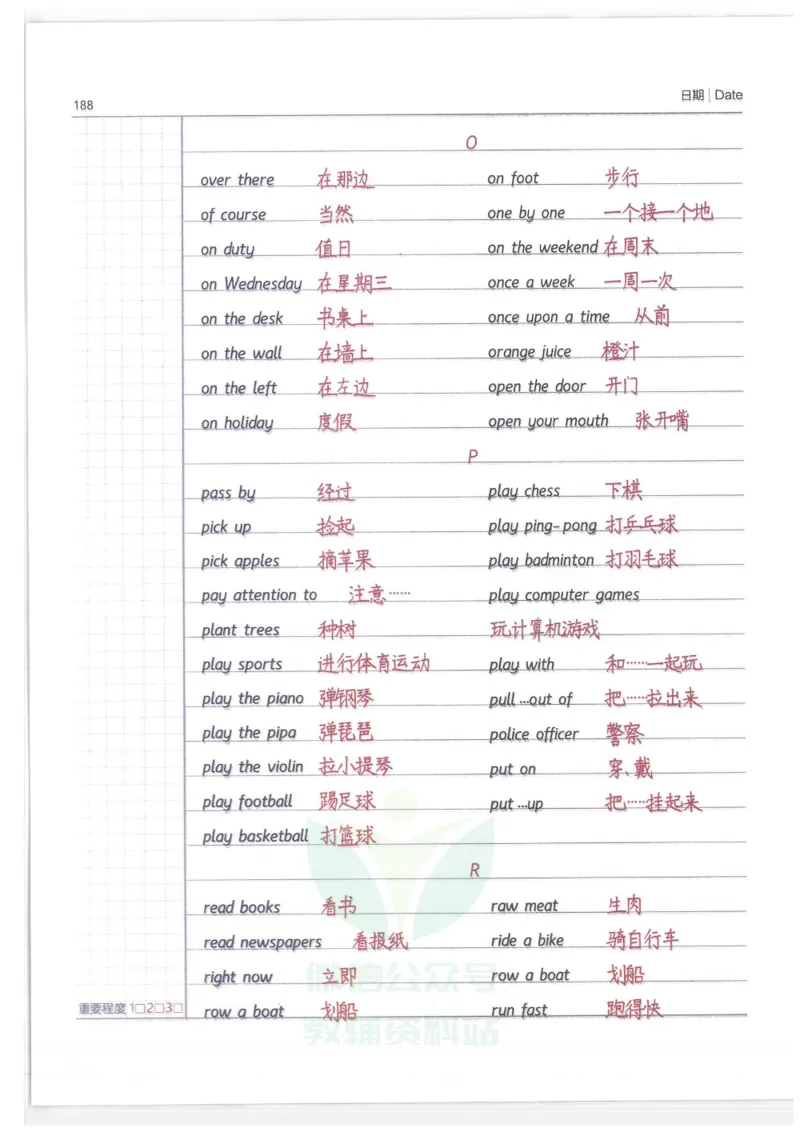 188
日期 | Date
O
over there 在那边 on foot 步行
of course 当然 one by one 一个接一个地
on duty 值日 on the weekend 在周末
on Wednesday 在星期三 once a week 一周一次
on the desk 书桌上 once upon a time 从前
on the wall 在墙上 orange juice 橙汁
on the left 在左边 open the door 开门
on holiday 度假 open your mouth 张开嘴
P
pass by 经过 play chess 下棋
pick up 捡起 play ping-pong 打乒乓球
pick apples 摘苹果 play badminton 打羽毛球
pay attention to 注意…… play computer games
plant trees 种树 玩计算机游戏
play sports 进行体育运动 play with 和……一起玩
play the piano 弹钢琴 pull …out of 把……拉出来
play the pipa 弹琵琶 police officer 警察
play the violin 拉小提琴 put on 穿、戴
play football 踢足球 put …up 把……挂起来
play basketball 打篮球
R
read books 看书 raw meat 生肉
read newspapers 看报纸 ride a bike 骑自行车
right now 立即 row a boat 划船
row a boat 划船 run fast 跑得快
重要程度 1□2□3□
微信公众号
教辅资料站